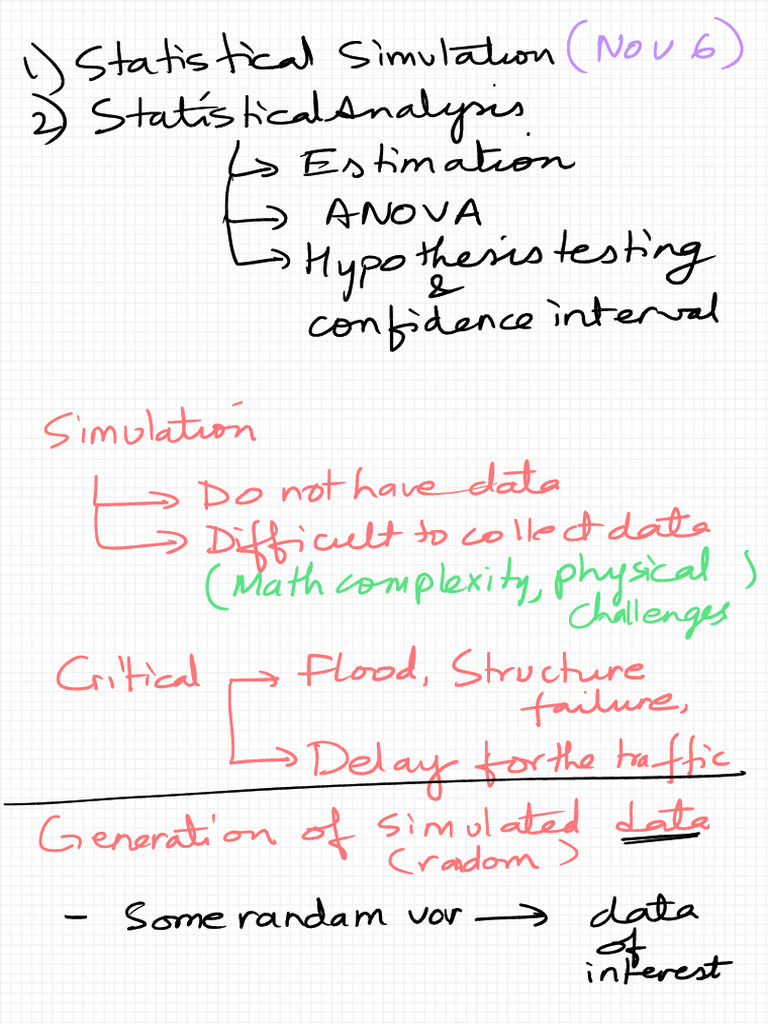 1) Statistical Simulation (Nov 6)
2) Statistical Analysis
→ Estimation
→ ANOVA
→ Hypothesis testing
&
confidence interval
Simulation
→ Do not have data
→ Difficult to collect data
(Math complexity, physical
challenges)
Critical → Flood, Structure
failure,
→ Delay for the traffic
Generation of simulated data
(radom)
- Some randam var → data
of
interest